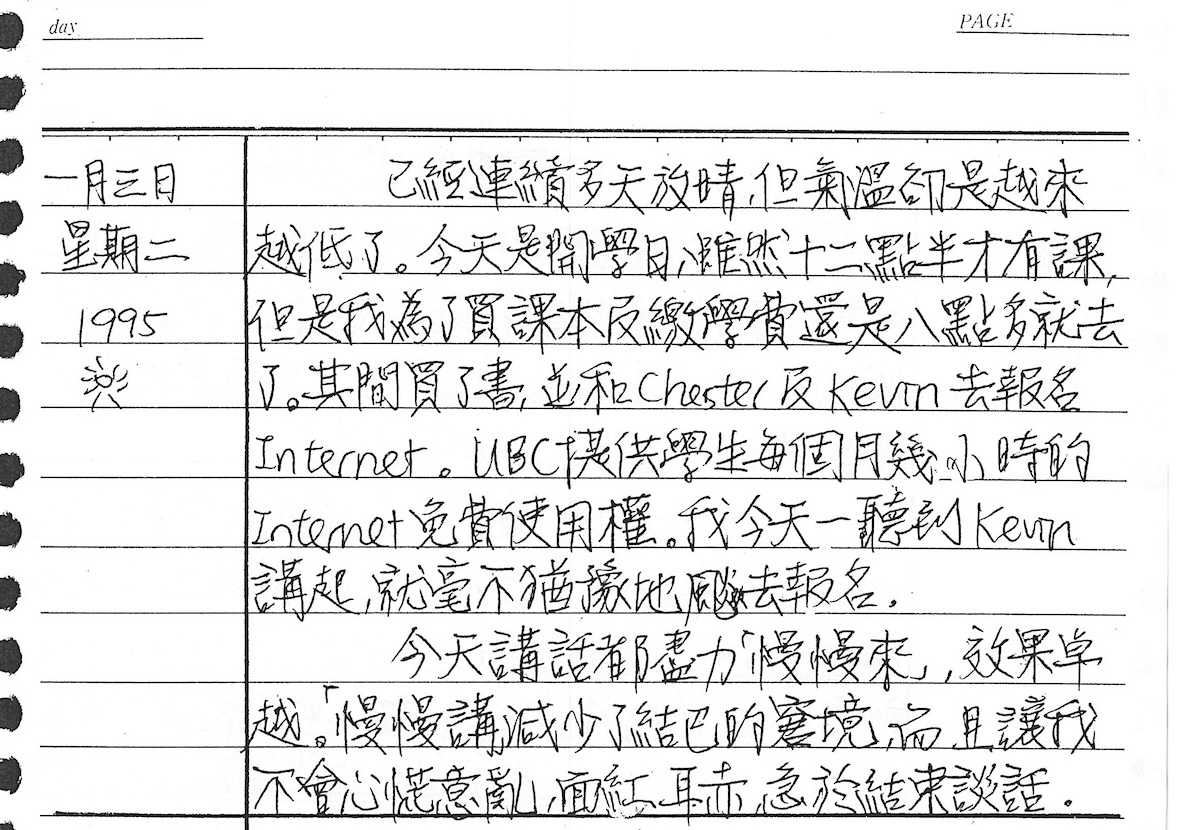 day
PAGE
一月三日
星期二
1995
已經連續多天放晴,但氣溫卻是越來
越低了。今天是開學日,雖然十二點半才有課,
但是我為了買課本及繳學費還是八點多就去
了。其間買了書,並和Chester及Kevin去報名
Internet。UBC提供學生每個月幾小時的
Internet免費使用權。我今天一聽到Kevin
講起,就毫不猶豫地 去報名.
今天講話都盡力「慢慢來」,效果卓
越。「慢慢講」減少了結巴的窘境,而且讓我
不會心慌意亂,面紅耳赤,急於結束談話.